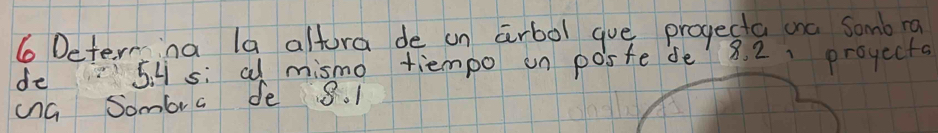 6 Determina la altura de un árbol que proyecta una Sombra
de 5.4 si al mismo tiempo un poste de 8.2, proyecta
una Sombra de 8.1